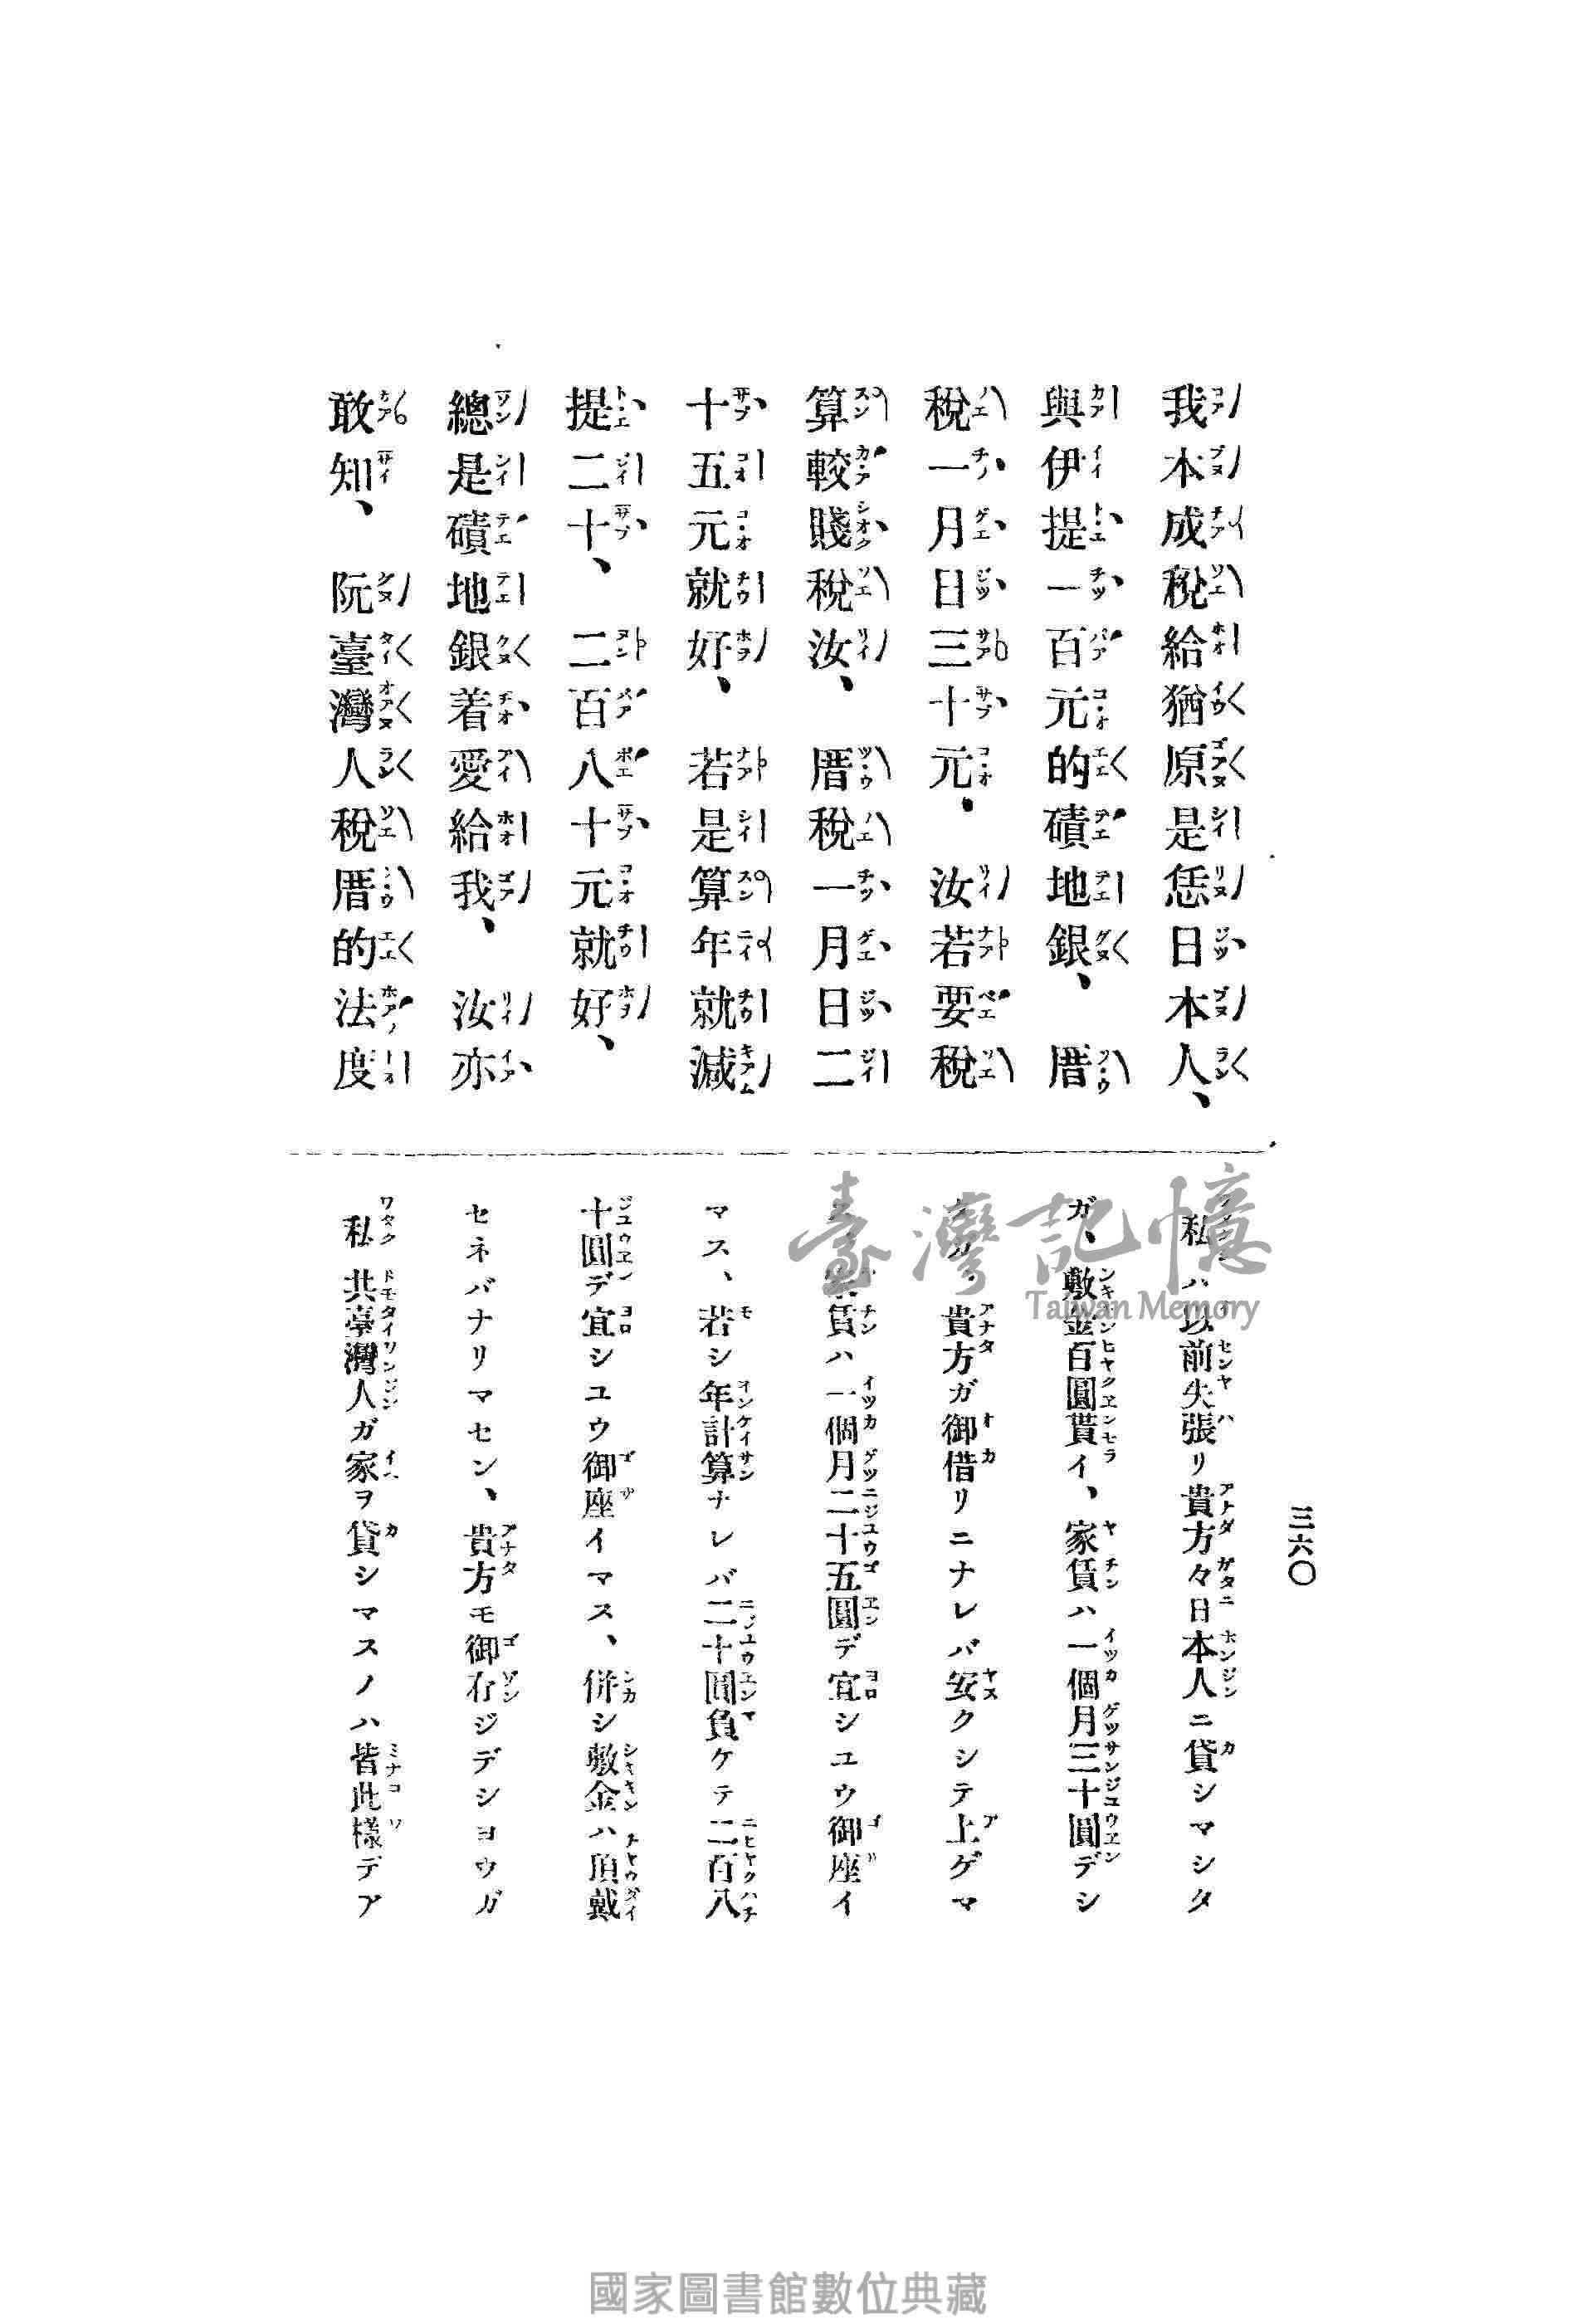 三六〇
我本成稅給猶原是恁日本人、
與伊提一百元的磧地銀、厝
稅一月日三十元．汝若要稅
算較賤稅汝、厝稅一月日二
十五元就好、若是算年就減
提二十、二百八十元就好、
總是磧地銀着愛給我、汝亦
敢知、阮臺灣人稅厝的法度
私ハ以前失張リ貴方々日本人ニ貸シマシタ
ガ、敷金百圓貰イ、家賃ハ一個月三十圓デシ
タガ、貴方ガ御借リニナレバ安クシテ上ゲマ
賃ハ一個月二十五圓デ宜シユウ御座イ
マス、若シ年計算ナレバ二十圓負ケテ二百八
十圓デ宜シユウ御座イマス、併シ敷金ハ頂戴
セネバナリマセン、貴方モ御存ジデシヨウガ
私共臺灣人ガ家ヲ貸シマスノハ皆此樣デア
臺灣記憶
Taiwan Memory
國家圖書館數位典藏